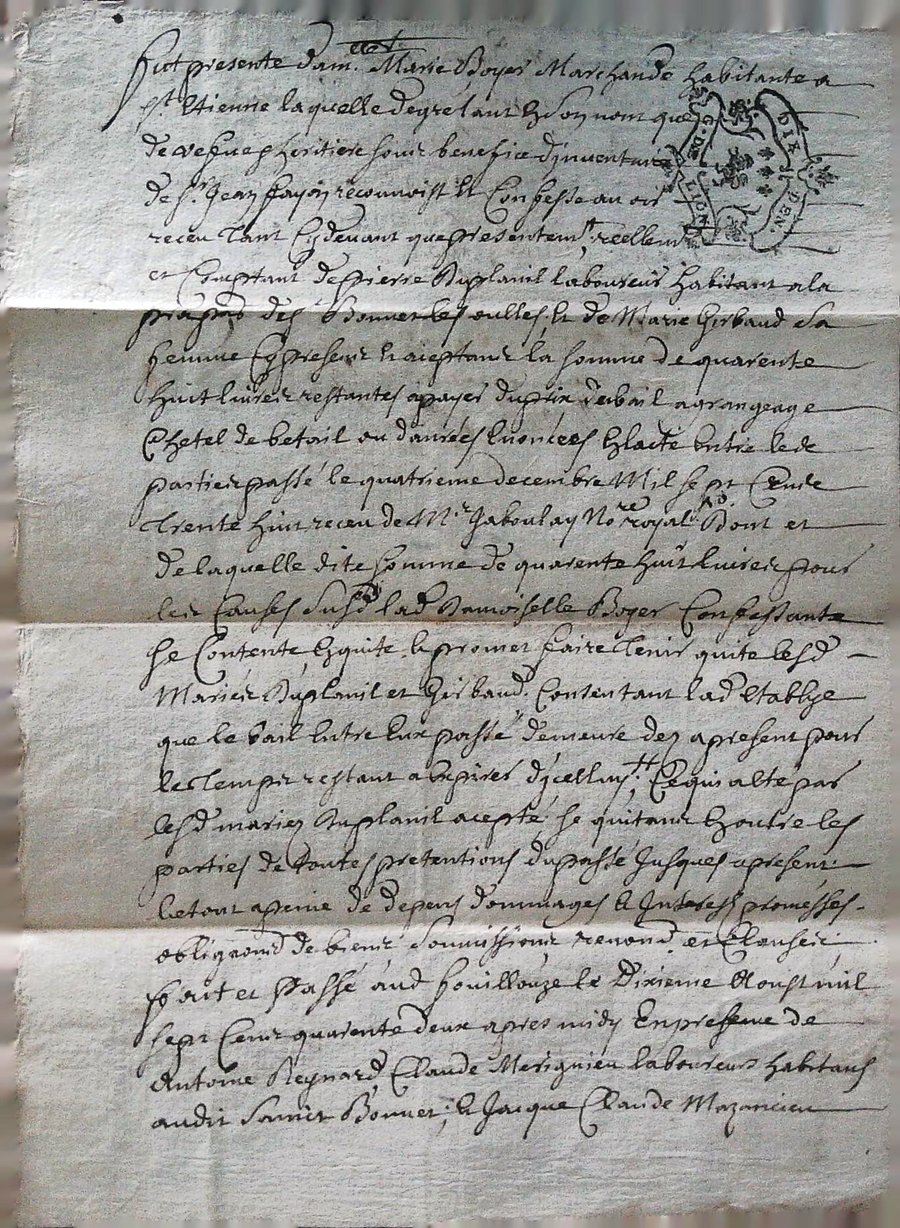 Fut presente dam.elle Marie Boyer Marchande habitante a
st Etienne laquelle de gré tant En son nom que
de vefue & heritiere souz benefice d'inventaire
de sr Jean fayon reconnoist Et Confesse avoir
receu tant Cy devant que presentemt, reellemt
et Comptant de pierre Duplanil laboureur habitant a la
des Bonnet les oulles, Et de Marie Girbaud Sa
femme Cy presens Et aceptans la somme de quarente
huit livres restantes a payer du prix du bail a grangeage
Chetel de betail ou danrées Enoncées En lacte Entre lesd
parties passé le quatrieme decembre Mil sept Cents
trente huit receu de Mr Jaboulay Nore royal Dont et
de laquelle dite somme de quarente huit livres pour
les Causes susd lad Damoiselle Boyer Confessante
se Contente, En quite Et promet faire tenir quite lesd
Mariez Duplanil et Girbaud. Consentant lad Etablye
que le bail Entre Eux passé demeure dez a present pour
le temps restant a Expirer Ce qui a Eté par
lesd mariez Duplanil acepté se quitans En outre les
parties de toutes pretentions du passé Jusques a present
Le tout a peine de depens dommages & Interests promesses
obligaons de biens, Soumissions renond et Clauses
fait et Passé aud fouillouze le Dixieme Aoust mil
sept Cens quarente deux apres midy En presence de
Antoine Reynard, Claude Merignieu laboureurs habitans
audit Sainct Bonnet; Et Jacque Claude Mazancieu
G. DE LION
DIX DEN.